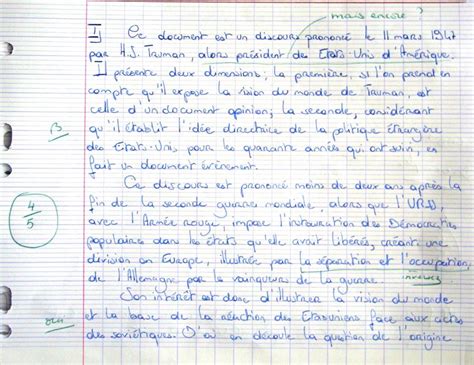 mais encore ?
I] Ce document est un discours prononcé le 11 mars 1947
par H.S. Truman, alors président des Etats-Unis d'Amérique.
Il présente deux dimensions : la première, si l'on prend en
compte qu'il expose la vision du monde de Truman, est
celle d'un document opinion ; la seconde, considérant
B qu'il établit l'idée directrice de la politique étrangère
des Etats-Unis pour les quarante années qui ont suivi, en
fait un document évènement.
Ce discours est prononcé moins de deux ans après la
4/5 fin de la seconde guerre mondiale, alors que l'URSS,
avec l'Armée rouge, impose l'instauration des Démocraties
populaires dans les états qu'elle avait libérés, créant une
division en Europe, illustrée par la séparation et l'occupation,
de l'Allemagne par les vainqueurs de la guerre. inverser
Son intérêt est donc d'illustrer la vision du monde
oui et la base de la réaction des Etasuniens face aux actes
des soviétiques. D'où en découle la question de l'origine